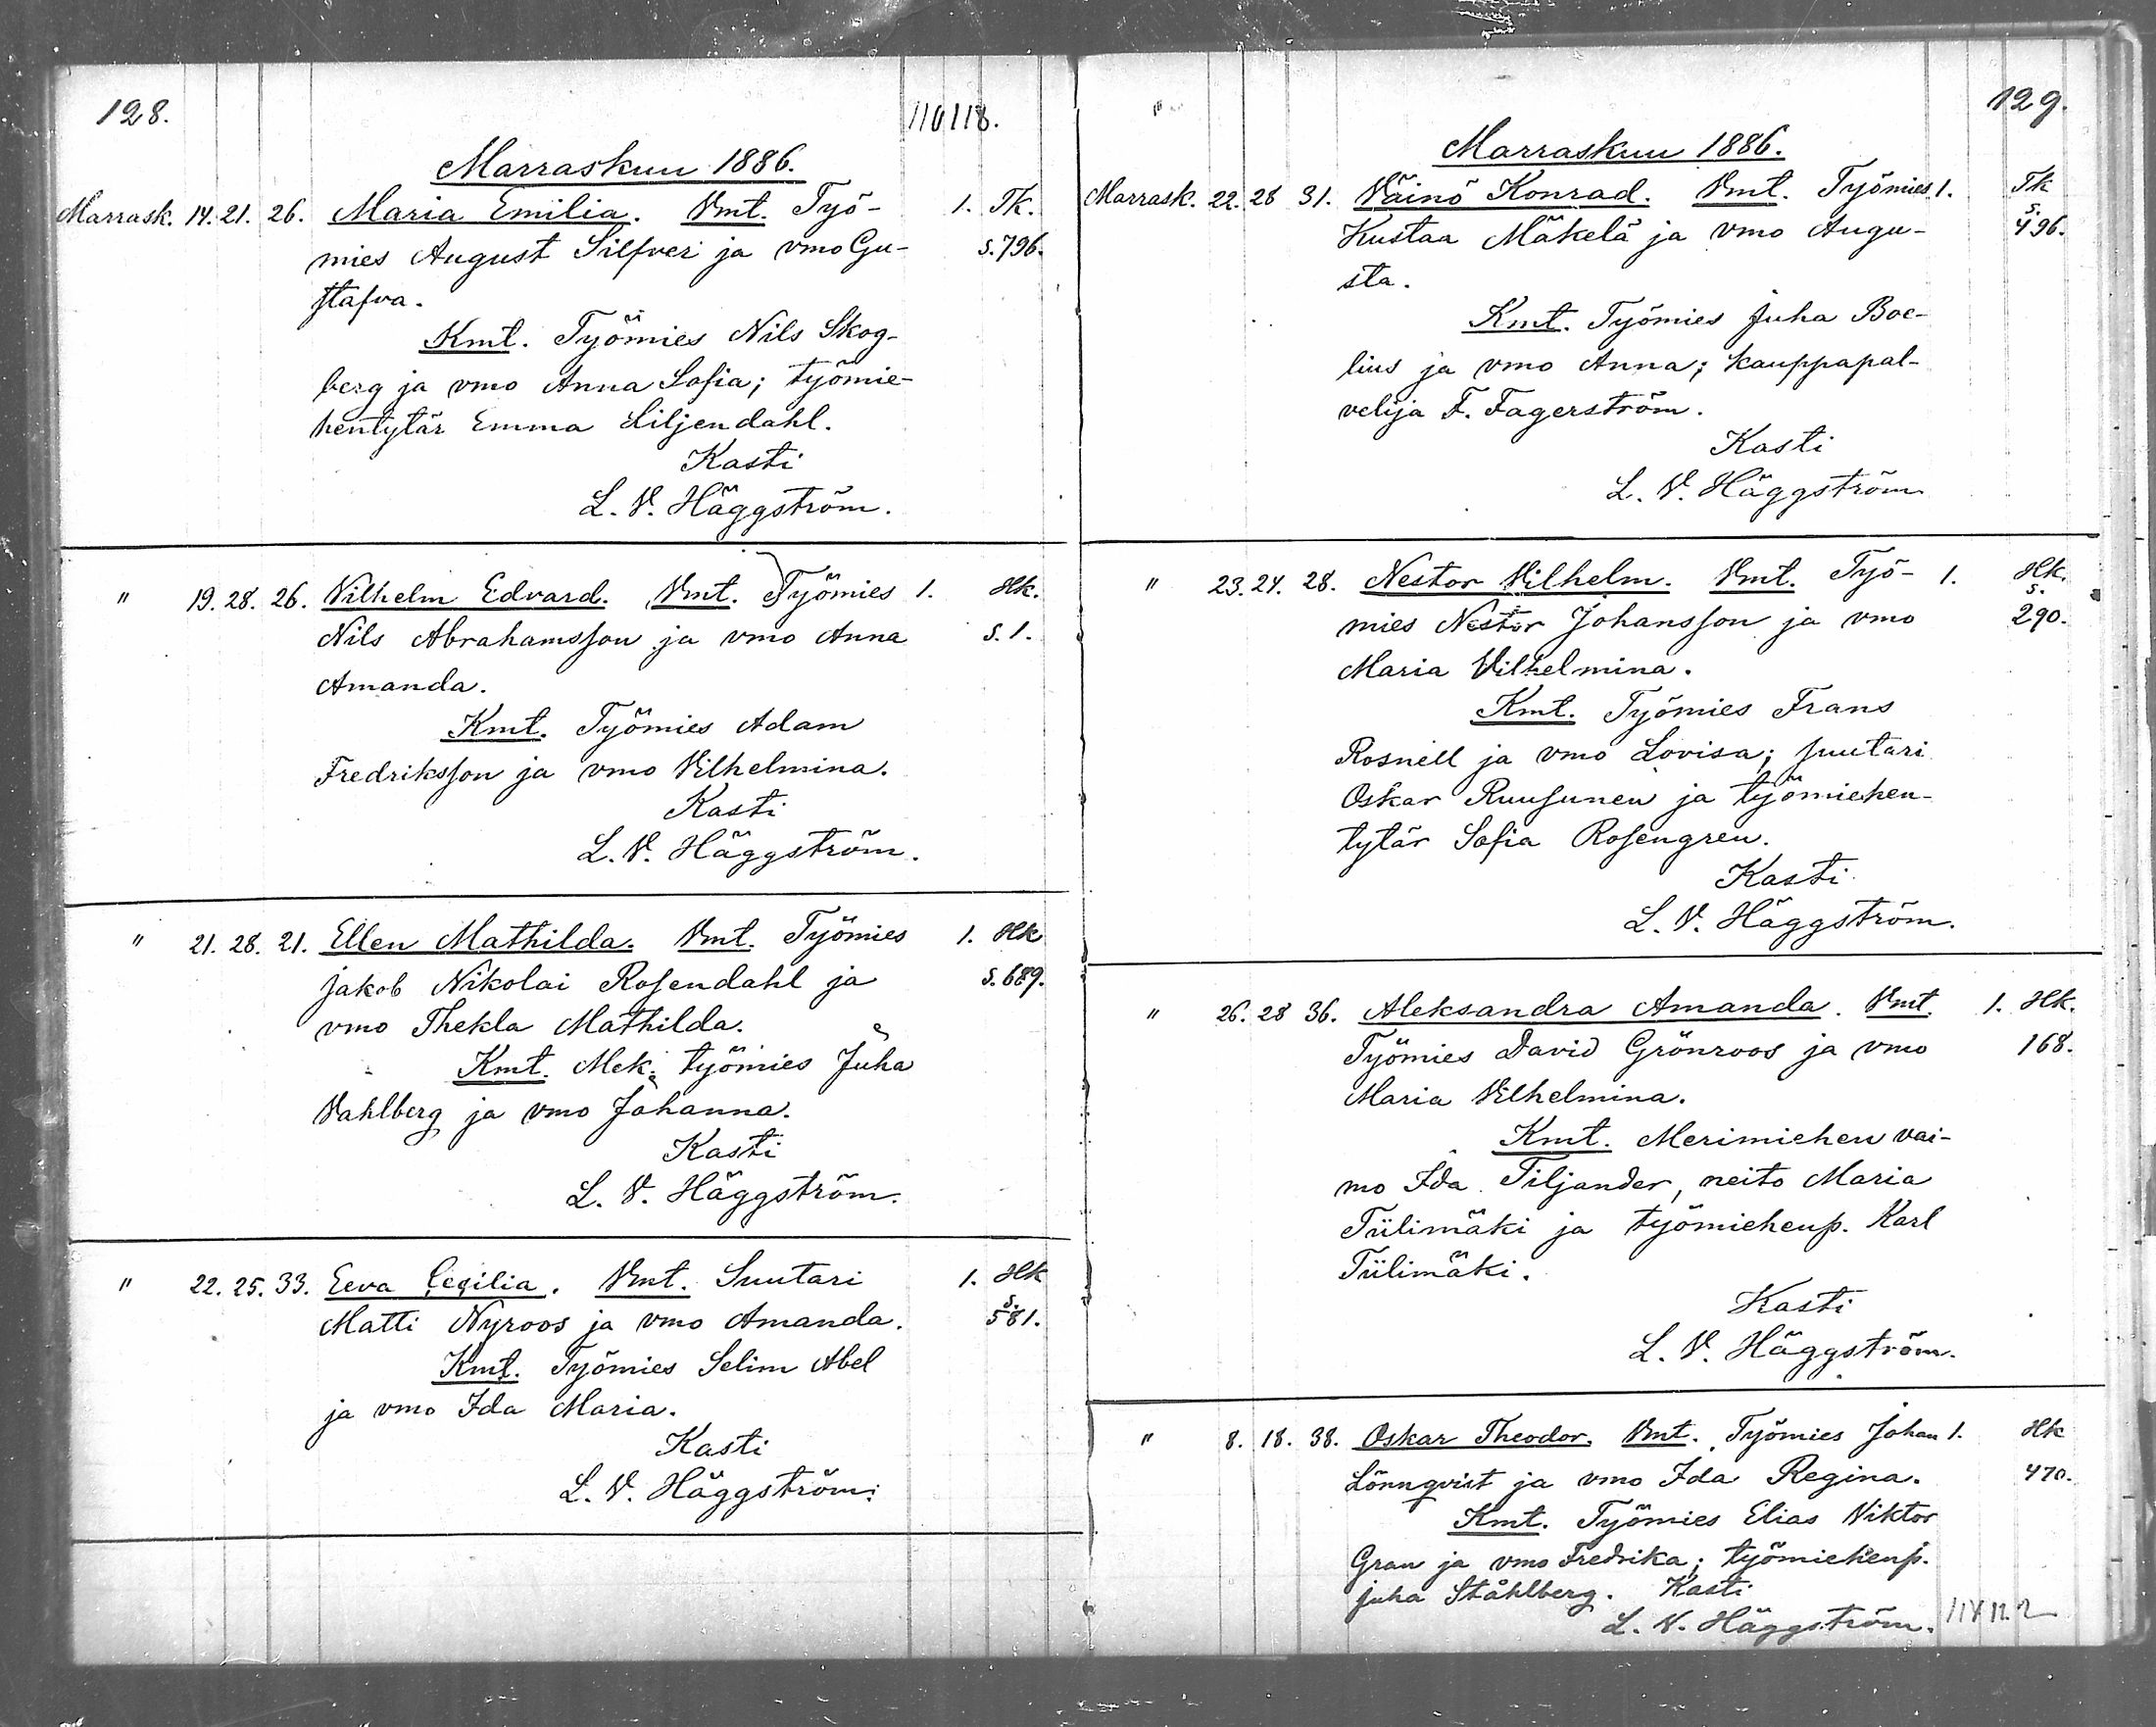 128.
116 118.
Marraskuu 1886.
Marrask. 14. 21. 26. Maria Emilia. Vmt. Työ- 1. Tk.
mies August Silfver ja vmo Gu- s. 796.
stafva.
Kmt. Työmies Nils Skog-
berg ja vmo Anna Sofia; työmie-
hentytär Emma Liljendahl.
Kasti
L. V. Häggström.
" 19. 28. 26. Vilhelm Edvard. Vmt. Työmies 1. Hk.
Nils Abrahamsson ja vmo Anna s. 1.
Amanda.
Kmt. Työmies Adam
Fredriksson ja vmo Vilhelmina.
Kasti
L. V. Häggström.
" 21. 28. 21. Ellen Mathilda. Vmt. Työmies 1. Hk
Jakob Nikolai Rosendahl ja s. 689.
vmo Thekla Mathilda.
Kmt. Mek. työmies Juha
Vahlberg ja vmo Johanna.
Kasti
L. V. Häggström.
" 22. 25. 33. Eeva Cecilia. Vmt. Suutari 1. Hk
Matti Nyroos ja vmo Amanda. s. 581.
Kmt. Työmies Selim Abel
ja vmo Ida Maria.
Kasti
L. V. Häggström.
129.
Marraskuu 1886.
Marrask. 22. 28 31. Väinö Konrad. Vmt. Työmies 1. Tk
Kustaa Mäkelä ja vmo Augu- s. 496.
sta.
Kmt. Työmies Juha Boe-
lius ja vmo Anna; kauppapal-
velija F. Fagerström.
Kasti
L. V. Häggström
" 23. 24. 28. Nestor Vilhelm. Vmt. Työ- 1. Hk.
mies Nestor Johansson ja vmo s. 290.
Maria Vilhelmina.
Kmt. Työmies Frans
Rosnell ja vmo Lovisa; suutari
Oskar Ruusunen ja työmiehen-
tytär Sofia Rosengren.
Kasti
L. V. Häggström.
" 26. 28 36. Aleksandra Amanda. Vmt. 1. Hk.
Työmies David Grönroos ja vmo 168.
Maria Vilhelmina.
Kmt. Merimiehen vai-
mo Ida Tiljander, neito Maria
Tiilimäki ja työmiehenp. Karl
Tiilimäki.
Kasti
L. V. Häggström.
" 8. 18. 38. Oskar Theodor. Vmt. Työmies Johan 1. Hk
Lönnqvist ja vmo Ida Regina. 470.
Kmt. Työmies Elias Viktor
Gran ja vmo Fredrika; työmiehenp.
Juha Ståhlberg. Kasti
L. V. Häggström.